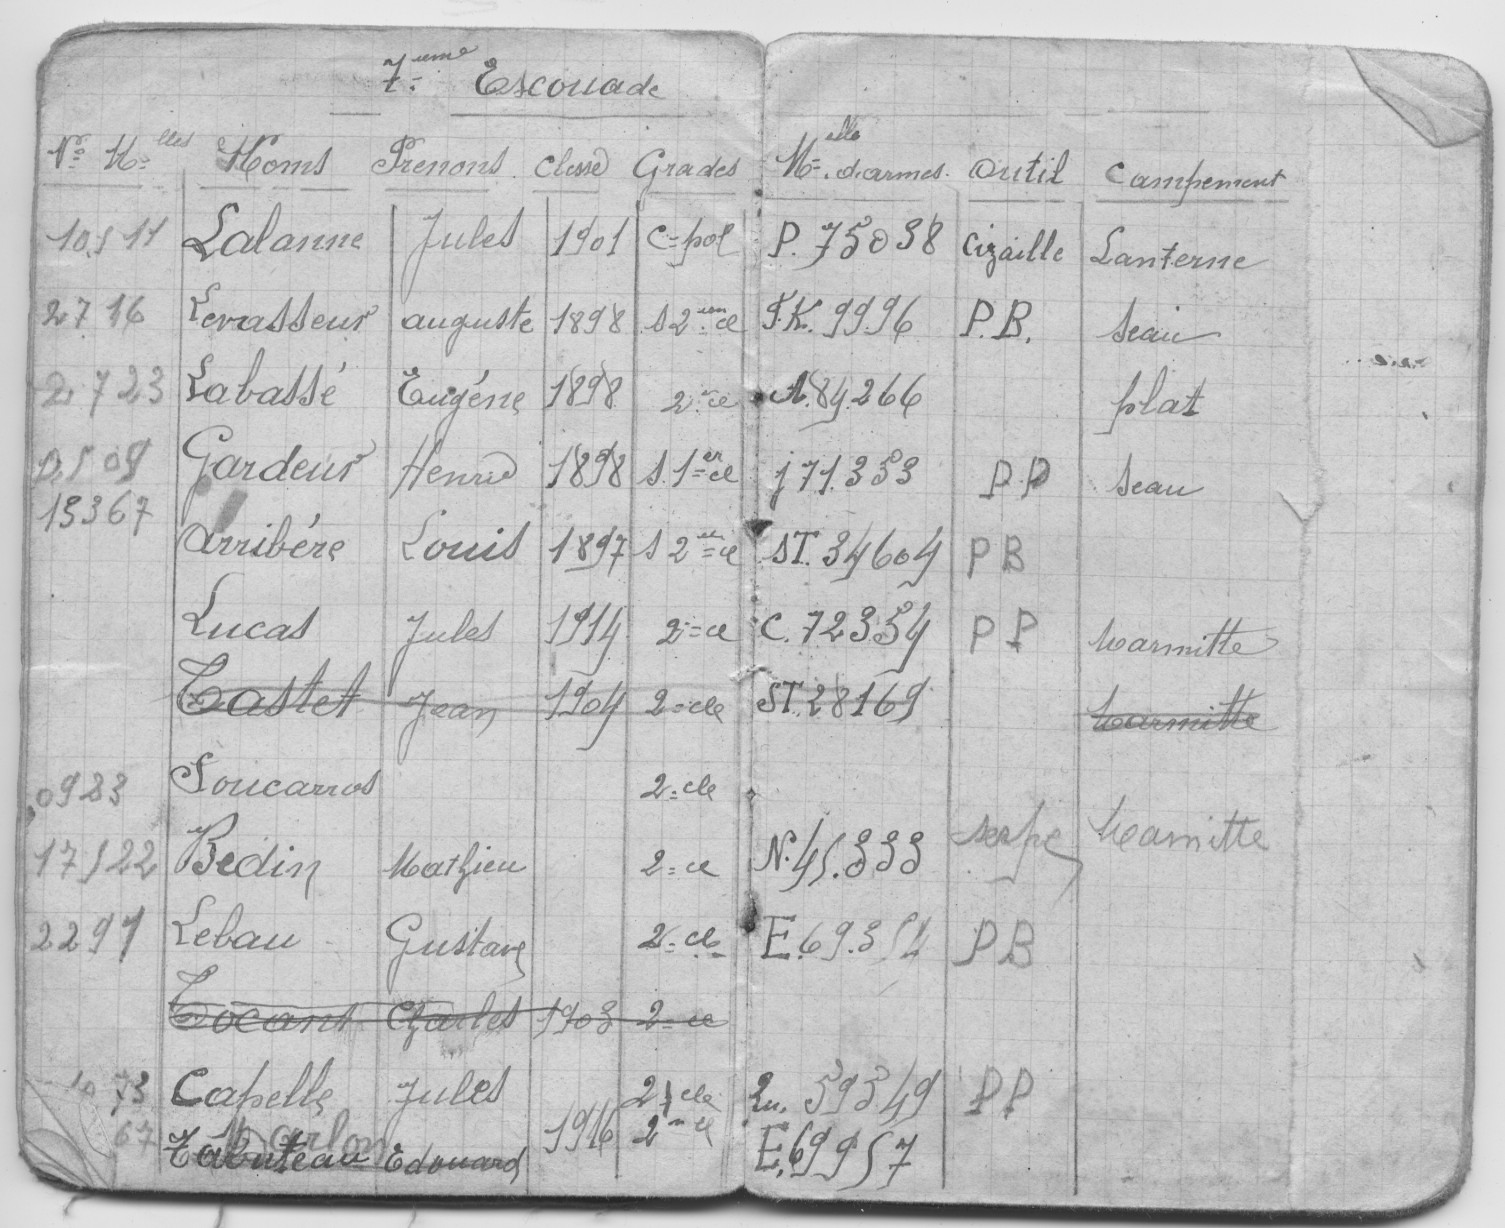 7ème Escouade
Nos Mlles Noms Prenons Classe Grades Mlle d'armes. Outil Campement
Lalanne Jules 1901 C=pol P. 75038 Cizaille Lanterne
2716 Levasseur auguste 1898 S 2 cl T.K. 9996 P.B. Seau
2.723 Labassé Eugéne 1898 2 cl A.84.266 plat
Gardeur Henri 1898 S. 1er cl j 71.353 P.P Seau
13367
Arribére Louis 1897 S 2 cl ST. 34604 P B
Lucas Jules 1914 2=cl C. 72354 P P Marmitte
Castet Jean 1904 2=cle ST.28169 Marmitte
0983 Soucarros 2=cle
17522 Bedin Mathieu 2=cl N.45.333 serpe Marmitte
2291 Lebau Gustave 2=cle E.69.352 P B
Tocant Charles 1903 2=cl
73 Capelle Jules 2 cle Qu. 59349 P P
67 Darlon 1916 2 cl
Tabuteau Edouard E.69957